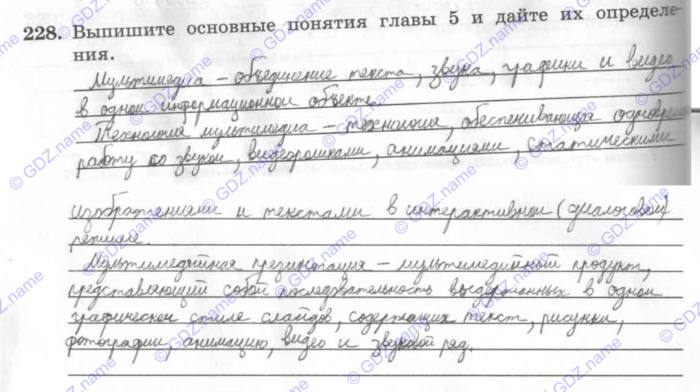 228. Выпишите основные понятия главы 5 и дайте их определе-
ния.
Мультимедиа – объединение текста, звука, графики и видео
в одном информационном объекте.
Технология мультимедиа – технология, обеспечивающая одноврем
работу со звуком, видеороликами, анимациями, статическими
изображениями и текстами в интерактивном (диалоговом)
режиме.
Мультимедийная презентация – мультимедийный продукт,
представляющий собой последовательность выдержанных в одном
графическом стиле слайдов, содержащих текст, рисунки,
фотографии, анимацию, видео и звуковой ряд.
© GDZ.name